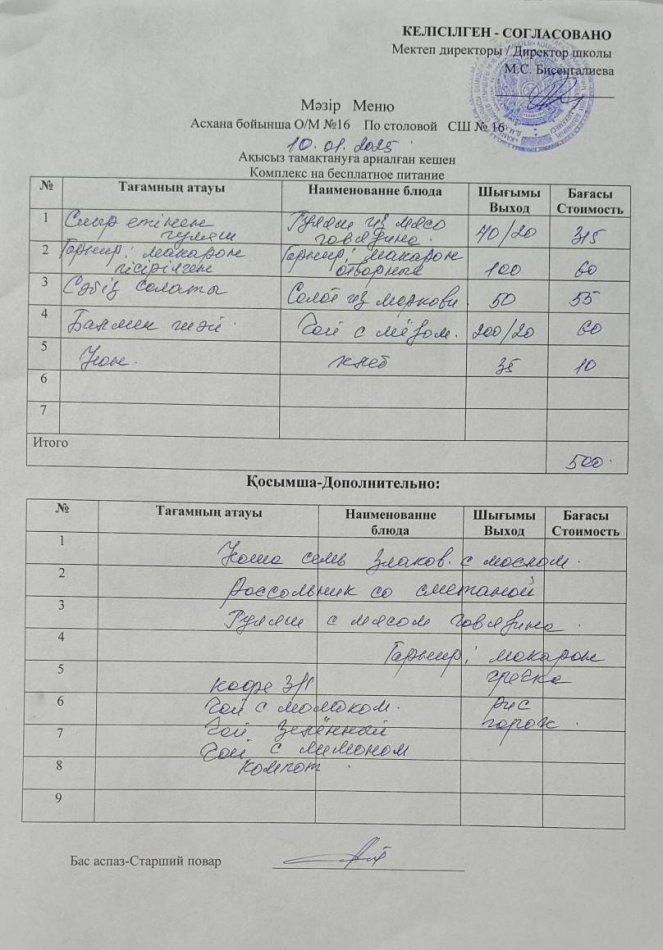 КЕЛІСІЛГЕН - СОГЛАСОВАНО
Мектеп директоры / Директор школы
М.С. Бисенгалиева
Мәзір Меню
Асхана бойынша О/М №16 По столовой СШ № 16
10.01.2025
Ақысыз тамақтануға арналған кешен
Комплекс на бесплатное питание
№ Тағамның атауы Наименование блюда Шығымы Выход Бағасы Стоимость
1 Сиыр етінен гуляш Гуляш из мясо говядина. 70/20 315
2 Гарнир: макарон пісірілген Гарнир: макарон отворные 100 60
3 Сәбіз салаты Салат из моркови 50 55
4 Балмен шәй. Чай с мёдом. 200/20 60
5 Нан. хлеб 35 10
6
7
Итого 500.
Қосымша-Дополнительно:
№ Тағамның атауы Наименование блюда Шығымы Выход Бағасы Стоимость
1 Каша семь злаков. с маслом.
2 Рассольник со сметаной
3 Гуляш с мясом говядина.
4 Гарнир: макарон
5 гречка
кофе 3/1
6 Чай с молоком. рис
7 Чай зелённый горох.
Чай с лимоном
8 Компот.
9
Бас аспаз-Старший повар